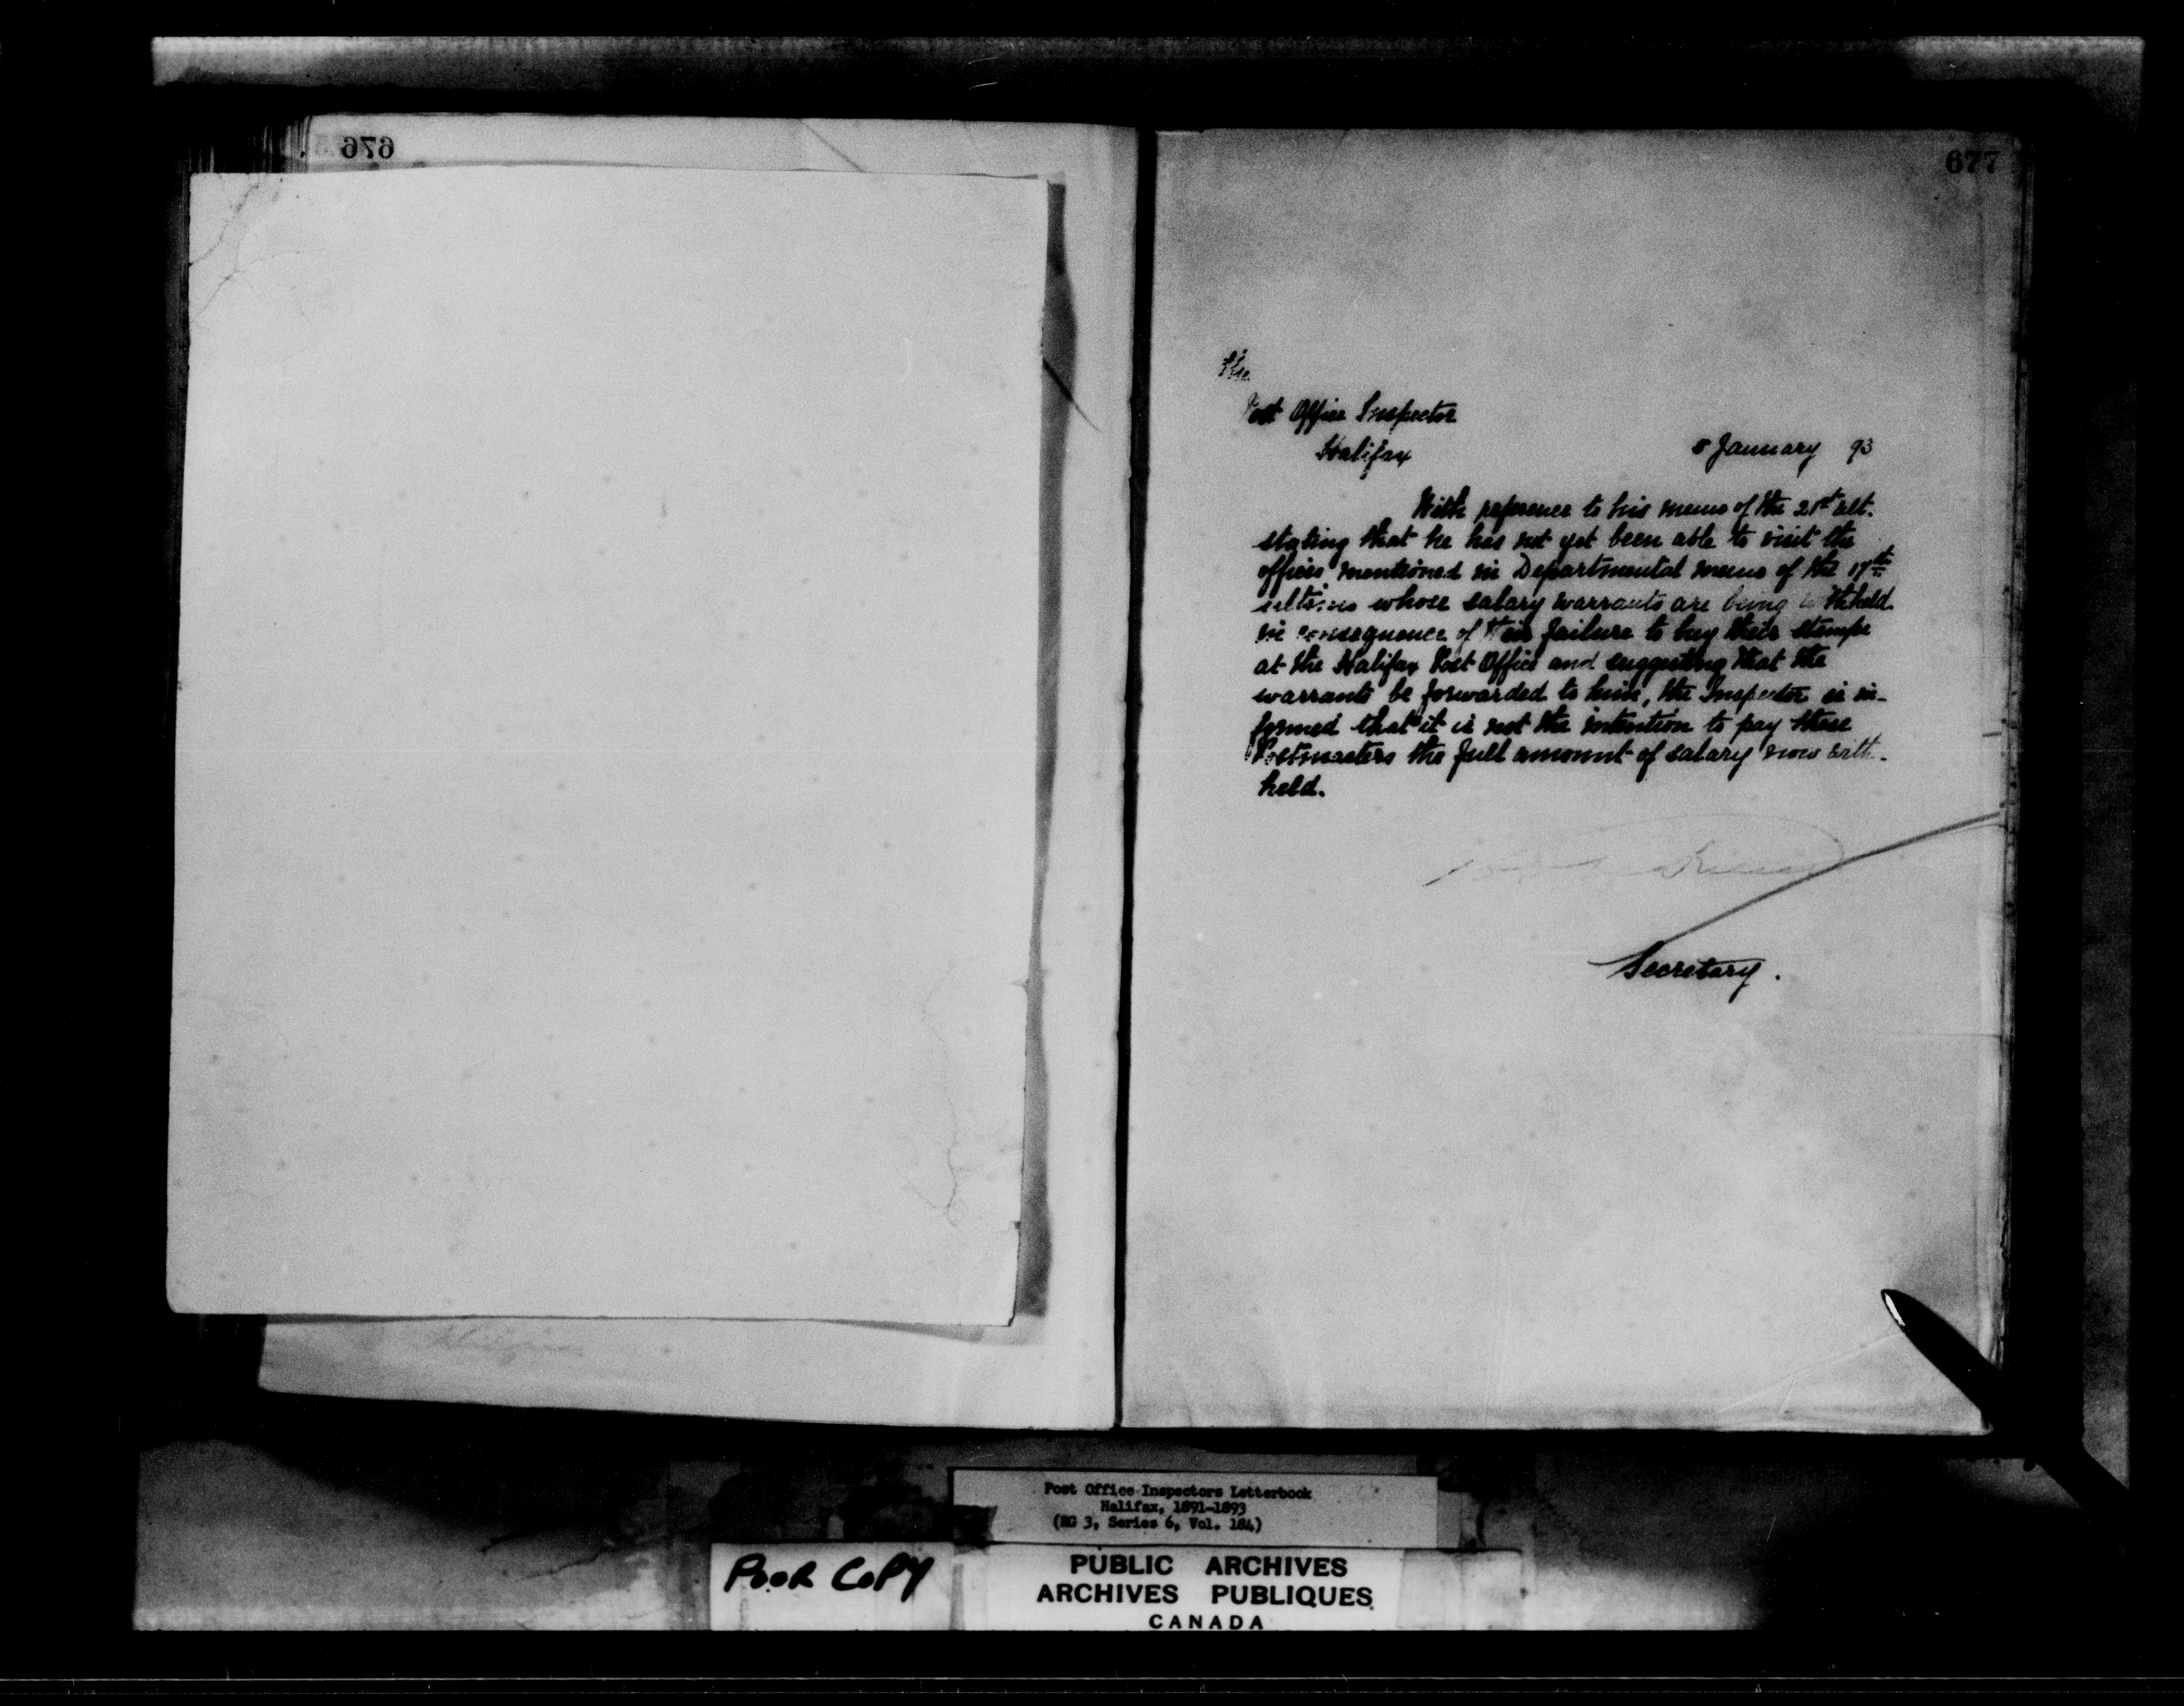 676
677
The
Post Office Inspector
Halifax
January 93
With reference to his memo of the 21st ult.
stating that he has not yet been able to visit the
offices mentioned in Departmental memo of the 17th
ultimo whose salary warrants are being withheld
in consequence of their failure to buy their stamps
at the Halifax Post Office and suggesting that the
warrants be forwarded to him, the Inspector is in-
formed that it is not the intention to pay these
Postmasters the full amount of salary now with-
held.
Secretary.
Post Office Inspectors Letterbook
Halifax, 1891-1893
(RG 3, Series 6, Vol. 184)
POOR COPY
PUBLIC ARCHIVES
ARCHIVES PUBLIQUES
CANADA